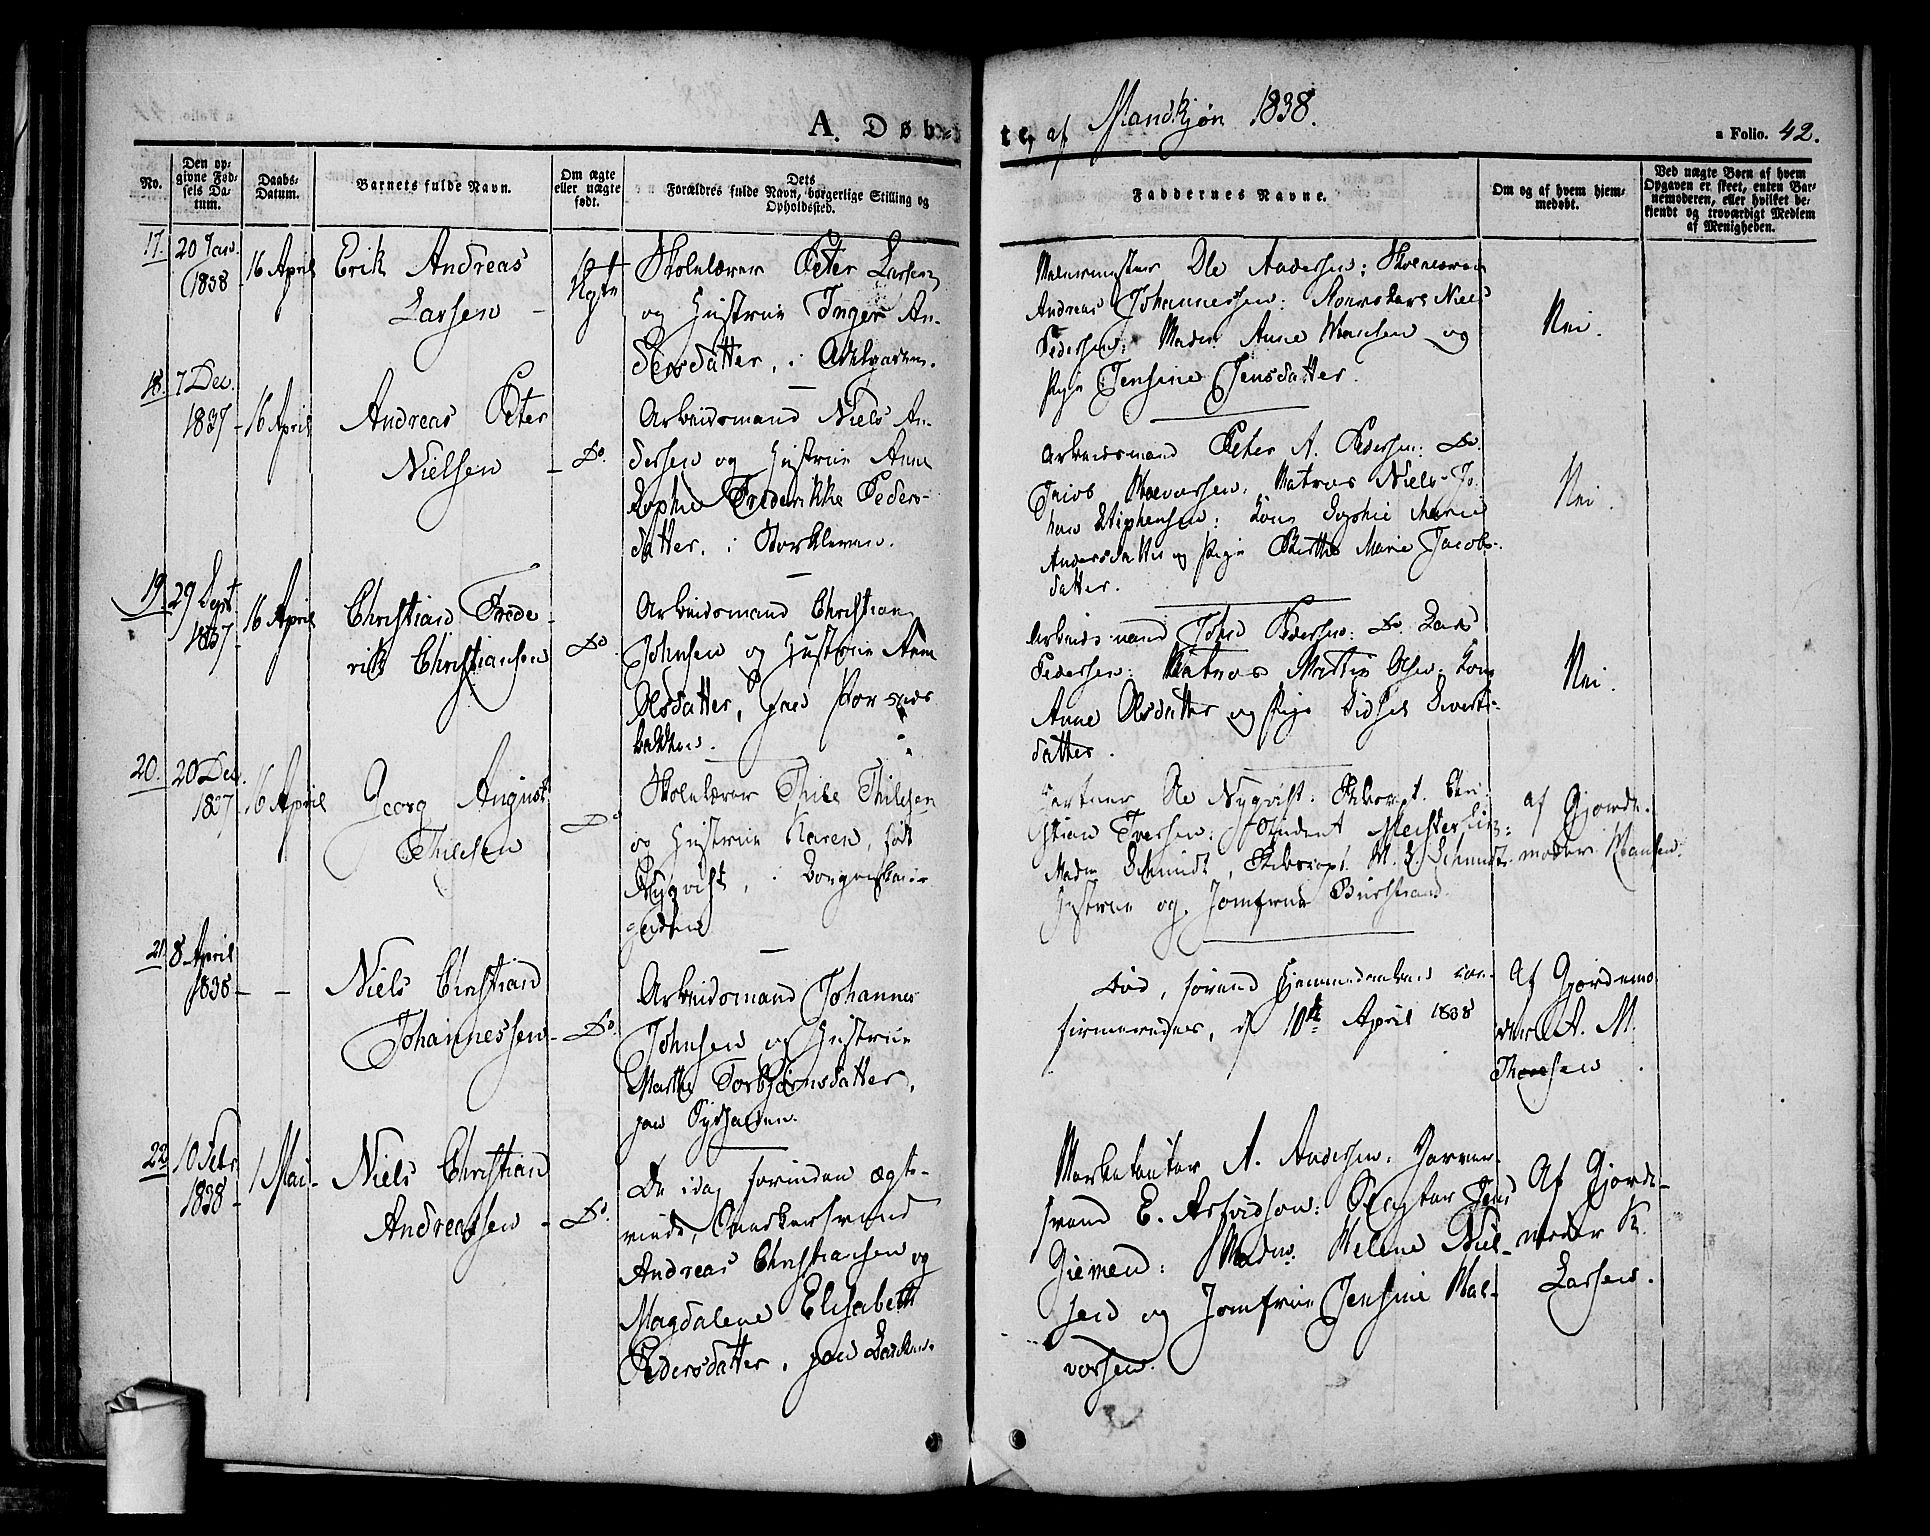 A. Døb-
te, af Mandkjøn 1838.
a Folio. 42.
No.
Den op-
givne Fød-
sels Da-
tum.
Daabs-
Datum.
Barnets fulde Navn.
Om ægte
eller uægte
født.
Dets
Forældres fulde Navn, borgerlige Stilling og
Opholdssted.
Faddernes Navne.
Om og af hvem hjem-
medøbt.
Ved uægte Børn af hvem
Opgaven er skeet, enten Bar-
nemoderen, eller hvilket be-
kjendt og troværdigt Medlem
af Menigheden.
17. 20 Jan.
1838
16 April
Erik Andreas
Larsen
Ægte
Skolelærer Peter Larsen
og Hustrue Inger An-
dersdatter, i
Ole Andersen:
Andreas Johannessen: Niels
Pedersen: Madm Anne og
Pige Jensine Jensdatter.
Nei.
18. 7 Dec.
1837
16 April
Andreas Peter
Nielsen
Do.
Arbeidsmand Niels An-
dersen og Hustrue Anne
Sophie Frederikke Peders-
datter, i Storkleven.
Arbeidsmand Peter A. Pedersen: Do.
Matros Niels Jo-
han Stiphensen: Kone Sophie Marie
Andersdatter og Pige Berthe Marie Jacobs-
datter.
Nei.
19. 29 Sept
1837
16 April
Christian Frede-
rik Christiansen
Do
Arbeidsmand Christian
Johnsen og Hustrue Anne
Olsdatter, paa
bakken.
Arbeidsmand John Pedersen: Do. Lars
Pedersen: Matros Martin Olsen: Kone
Anne Olsdatter og Pige Sidsel Siverts-
datter.
Nei.
20. 20 Dec.
1837
16 April
Georg August
Thilesen
Do
Skolelærer Thile Thilesen
og Hustrue Karen, født
Nyqvist, i
gaden
Gertner Ole Nyqvist: Skibscapt. Chri-
stian Iversen: Student
Madm Schmidt, Skibscapt. M. L. Schmidts
Hustrue og Jomfrue
af Gjorde-
moder Hansen.
21. 8 April
1838
-
Niels Christian
Johannessen
Do.
Arbeidsmand Johannes
Johnsen og Hustrue
Marthe Torbjørnsdatter,
paa Sydsiden.
Død, førend Hjemmedaaben con-
firmeredes, d 10de April 1838
Af Gjordemo-
der A. M.
Thorsen
22 10 Febr
1838
1 Mai
Niels Christian
Andreassen
Do.
De idag forinden ægte-
viede,
Andreas Christiansen og
Magdalene Elisabeth
Pedersdatter, paa Bakken.
Marketenter A. Andersen:
svend E. Arfvidson: Jens
Giemen: Madm. Helene Niel-
sen og Jomfrue Jensine Hal-
vorsen.
Af Gjorde-
moder K.
Larsen.